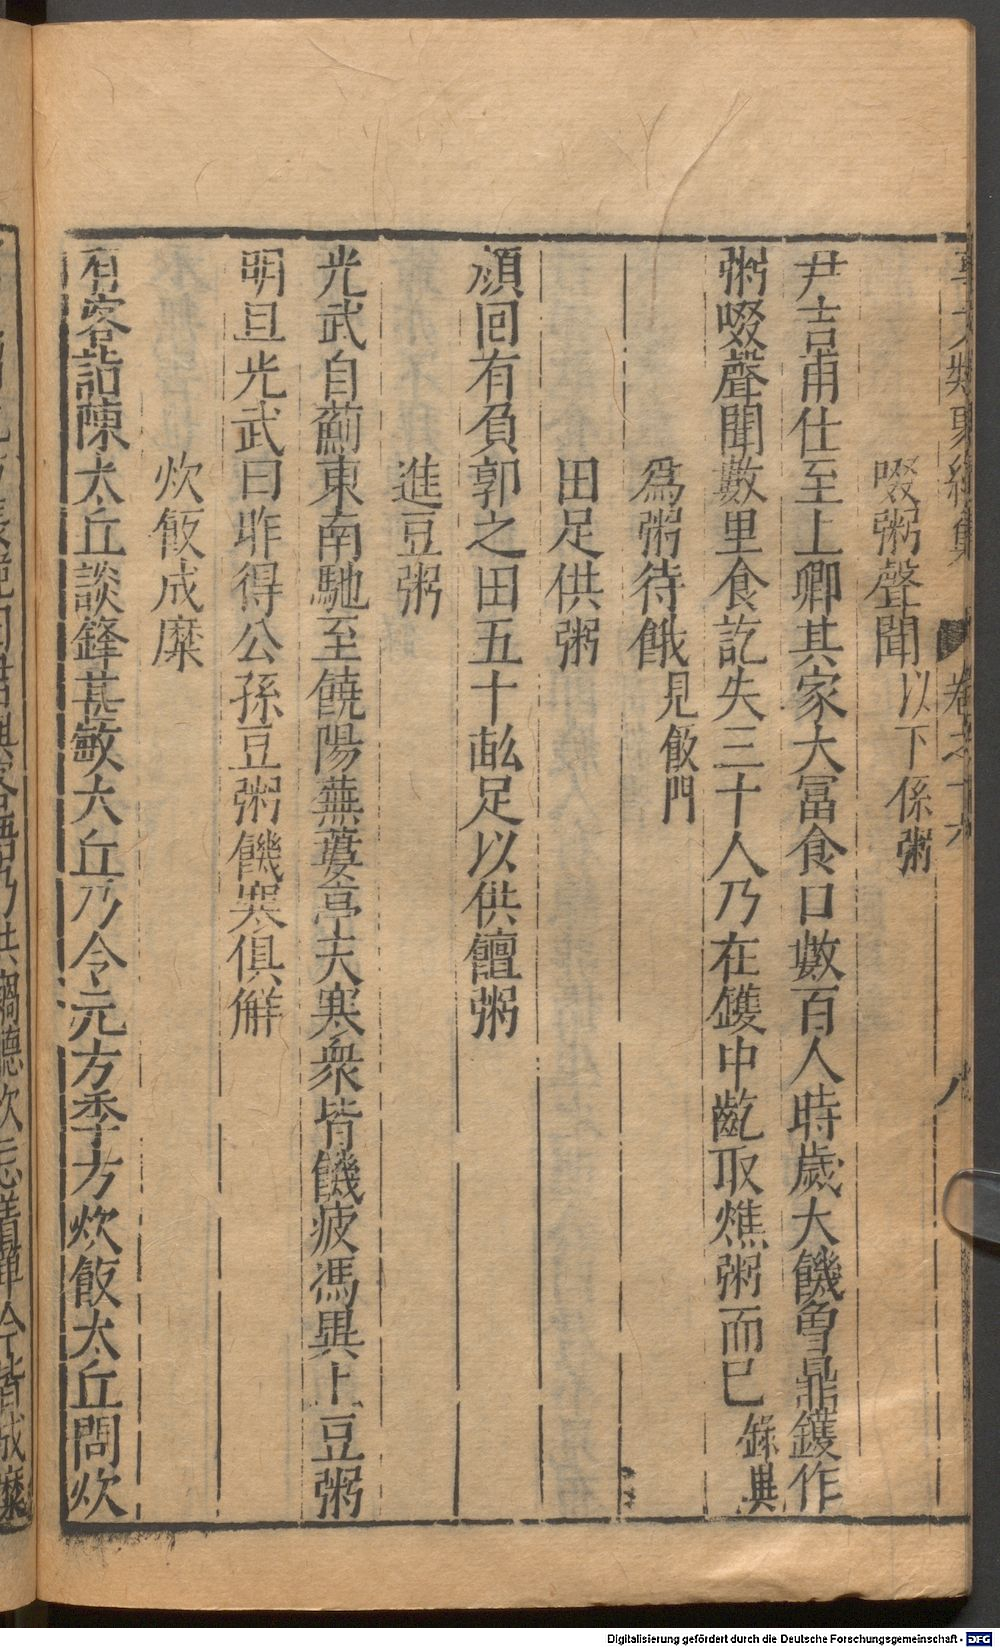 啜粥聲聞以下係粥
尹吉甫仕至上卿其家大冨食口數百人時歲大饑鲁鼎鑊作
粥啜聲聞數里食訖失三十人乃在鑊中齔取燋粥而已錄異
爲粥待餓見飯門
田足供粥
顔回有負郭之田五十畝足以供饘粥
進豆粥
光武自薊東南馳至饒陽蕪蔞亭天寒衆皆饑疲馮異上豆粥
明旦光武曰昨得公孫豆粥饑寒俱解
炊飯成糜
有客詣陳太丘談鋒甚敏太丘乃令元方季方炊飯太丘問炊
Digitalisierung gefördert durch die Deutsche Forschungsgemeinschaft - DFG